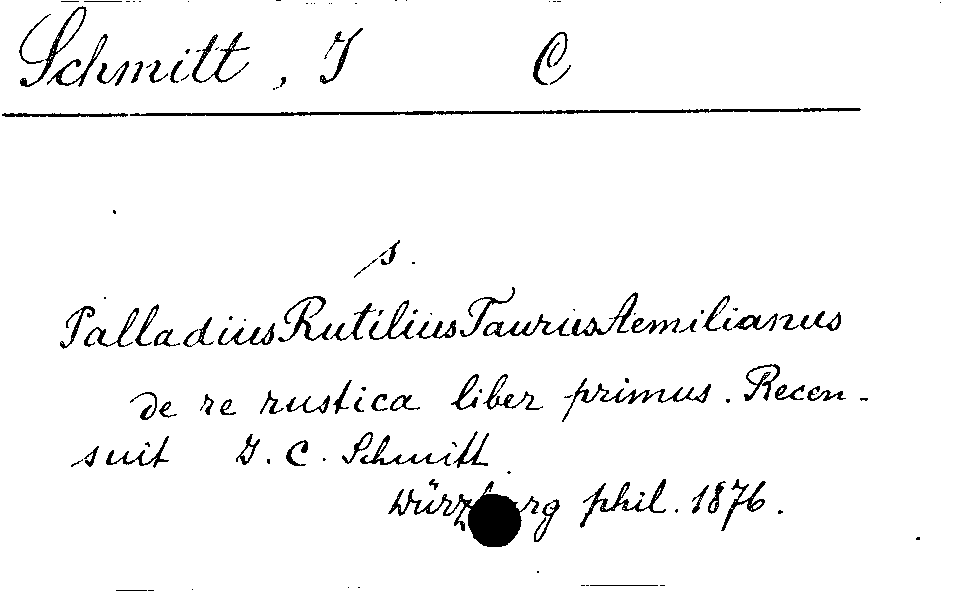 Schmitt, J C
s.
Palladius Rutilius Taurus Aemilianus
de re rustica liber primus. Recen-
suit J. C. Schmitt
Würzburg phil. 1876.